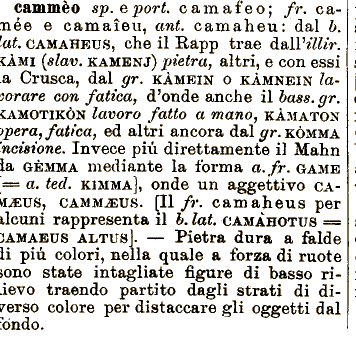 cammèo sp. e port. camafeo; fr. ca-
mée e camaîeu, ant. camaheu: dal b.
lat. CAMAHEUS, che il Rapp trae dall'illir.
KÀMI (slav. KAMENJ) pietra, altri, e con essi
la Crusca, dal gr. KÀMEIN o KÀMNEIN la-
vorare con fatica, d'onde anche il bass. gr.
KAMOTIKÒN lavoro fatto a mano, KÀMATON
opera, fatica, ed altri ancora dal gr. KÒMMA
incisione. Invece piú direttamente il Mahn
da GÈMMA mediante la forma a. fr. GAME
[= a. ted. KIMMA], onde un aggettivo CA-
MÆUS, CAMMÆUS. [Il fr. camaheus per
alcuni rappresenta il b. lat. CAMÀHOTUS =
CAMAEUS ALTUS]. — Pietra dura a falde
di piú colori, nella quale a forza di ruote
sono state intagliate figure di basso ri-
lievo traendo partito dagli strati di di-
verso colore per distaccare gli oggetti dal
fondo.